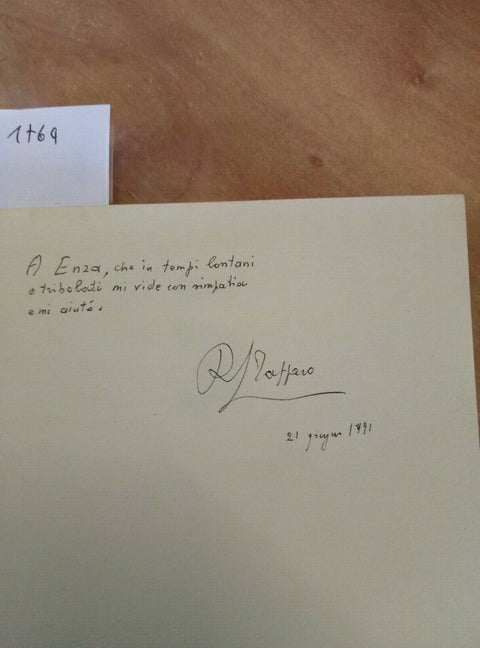 1769
A Enza, che in tempi lontani
e tribolati mi vide con simpatia
e mi aiutò.
21 giugno 1991